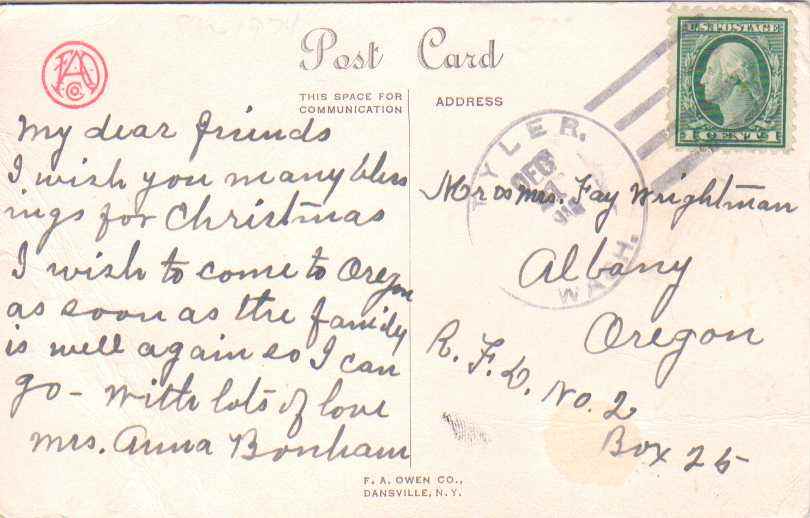 Post Card
THIS SPACE FOR
COMMUNICATION
ADDRESS
U.S. POSTAGE
1 CENT 1
TYLER.
DEC
WASH.
My dear friends
I wish you many bless
ings for Christmas
I wish to come to Oregon
as soon as the family
is well again so I can
go - With lots of love
Mrs. Anna Bonham
Mr & Mrs. Fay Wrightman
Albany
Oregon
R. F. D. No. 2
Box 25
F. A. OWEN CO.,
DANSVILLE, N. Y.